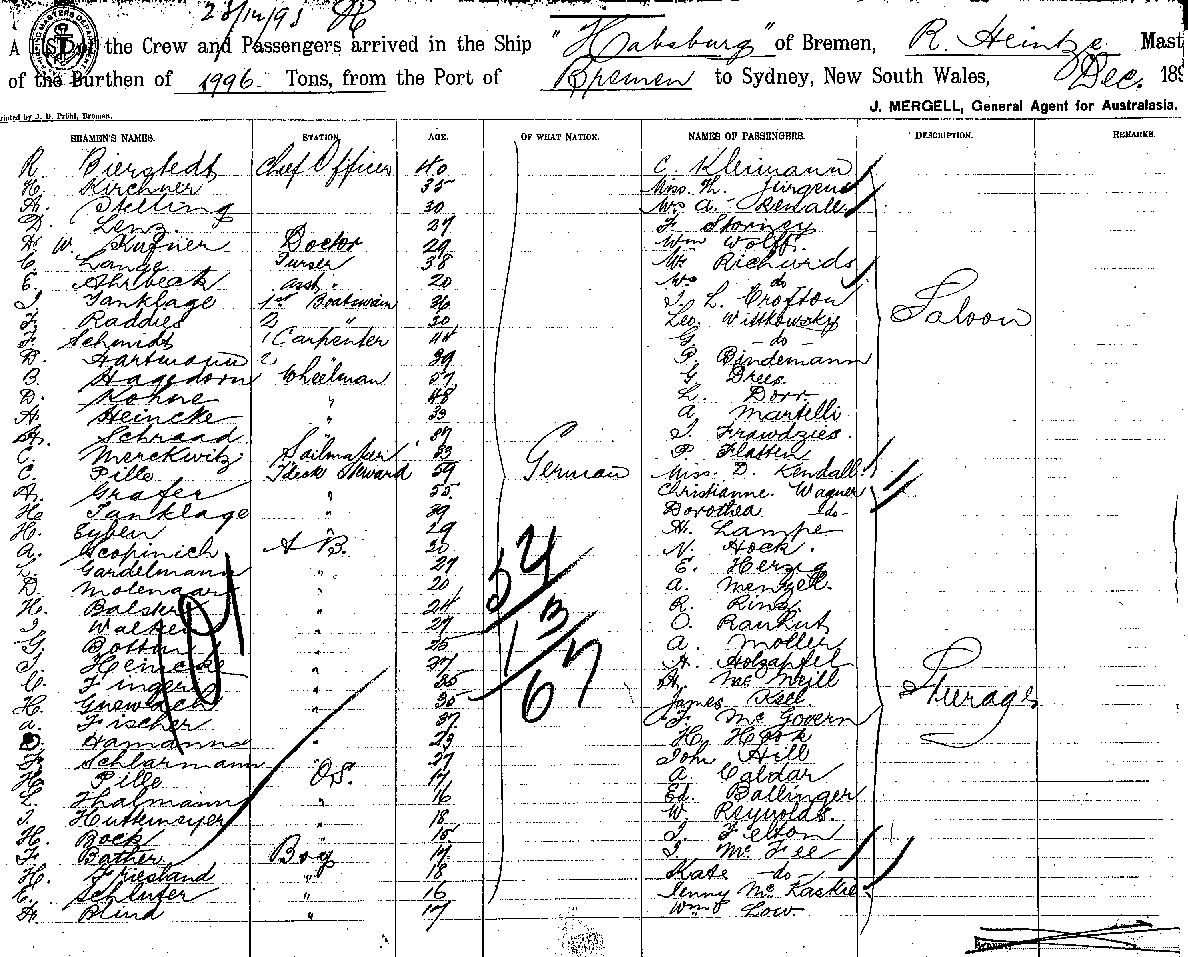 23/12/93
A LIST of the Crew and Passengers arrived in the Ship "Habsburg" of Bremen, R. Heintze Mast
of the Burthen of 1996 Tons, from the Port of Bremen to Sydney, New South Wales, Dec. 189
J. MERGELL, General Agent for Australasia.
Printed by J. D. Pröhl, Bremen.
SEAMEN'S NAMES. STATION. AGE. OF WHAT NATION. NAMES OF PASSENGERS. DESCRIPTION. REMARKS.
R. Bierstedt Chief Officer 40 C. Kleimann
H. Kirchner 35 Miss. Jürgens
A. Stelling 30 Mrs A. Kendall
D. Lenz 27 F. Storney
W. Kufner Doctor 29 Wm Wolff
C. Lange Purser 38 Mr Richards
E. Ahrbeck asst " 20 Mrs do
J. Tanklage 1st Boatswain 36 J. L. Crofton
F. Raddies 2 " 30 Leo. Wittkowsky Saloon
F. Schmidt 1 Carpenter 44 G. - do -
D. Hartmann 2 39 P. Bindemann
B. Hagedorn Wheelman 57 G. Drees.
D. Kohne " 48 L. Dorr
A. Heincke " 33 A. Martelli
A. Schraad " J. Frawdzies.
C. Merckwitz Sailmaker 23 P. Flatten
C. Pille Steward 59 German Miss. D. Kendall
A. Grafer " 55 Christianne. Wagner
H. Tanklage " 39 Dorothea do-
H. Eyben " 29 H. Lampe
A. Scopinich A B. 20 N. Hock.
Gardelmann " 27 E. Herzig
D. Molenaar " 20 A. Menzel.
H. Balster " 24 R. King.
J. Walker " 27 O. Rauhut
G. Bottom " 25 A. Moller
J. Heincke " 27 A. Holzapfel
C. Fingers " 25 A. McNeill
H. Gnewuch " 35 James Steerages
A. Fischer " 37 F. Mc Govern
Hamann " 23 H. Hook
Schlarmann " 27 John Hill
H. Pille O.S. 17 A. Caldar
Thalmann " 16 Ed. Ballinger
J. Huttemeyer " 18 W. Reynolds.
H. Bock " 15 J. Felton
F. Bather Boy 17 J. Mc Fee
H. Friesland " 18 Kate - do -
C. Schluter " 16 Jenny Mc Kaskie
A. Blind " 17 Wm Low.
54
13
67